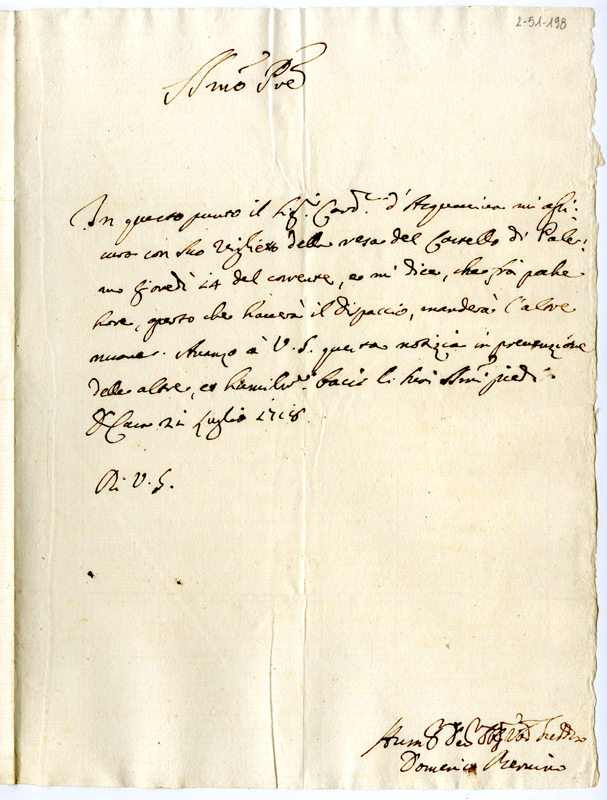 2-51-198
SSmo Pre
In questo punto il Sigr. Card. d'Acquaviva mi assi:
cura con suo viglietto della resa del Castello di Paler:
mo Giovedì 14 del corrente, e mi dice, che frà poche
hore, che haverà il dispaccio, manderà l'altre
nuove. Avanzo à V. S. questa notizia in prevenzione
delle altre, et humilmte. bacio li suoi SSmi piedi.
Di Casa 21 Luglio 1718.
Di V. S.
Domenico